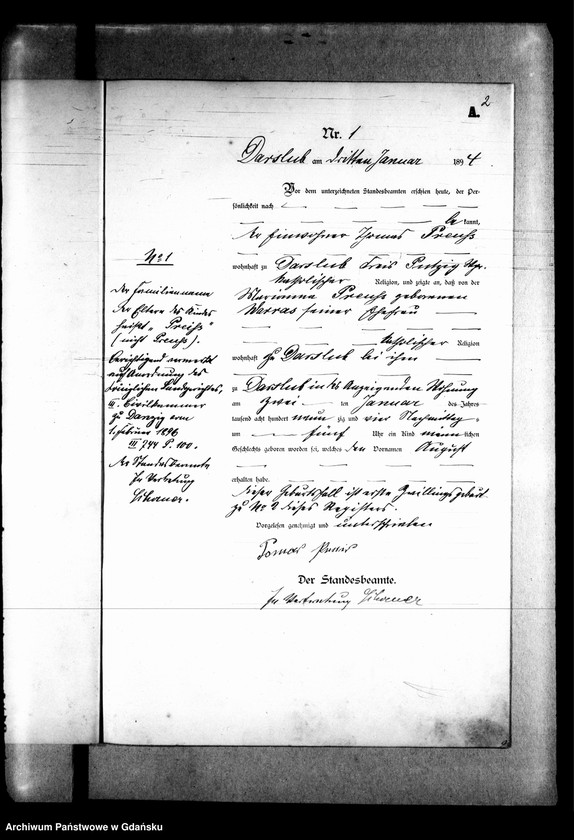 2
A.
Nr. 1
Darslub am dritten Januar 1894
Vor dem unterzeichneten Standesbeamten erschien heute, der Per-
sönlichkeit nach
be kannt,
der Einwohner Thomas Preuß
wohnhaft zu Darslub Kreis Putzig
katholischer Religion, und zeigte an, daß von der
Marianna Preuß geborenen
Werras seiner Ehefrau
katholischer Religion
wohnhaft zu Darslub bei ihm
zu Darslub in des Anzeigenden Wohnung
am zwei ten Januar des Jahres
tausend acht hundert neun zig und vier Nachmittag s
um fünf Uhr ein Kind männ lichen
Geschlechts geboren worden sei, welches den Vornamen August
erhalten habe.
Dieser Geburtsfall ist erste Zwillingsgeburt
zu No 2 dieses Registers.
Vorgelesen genehmigt und unterschrieben
Tomas
Der Standesbeamte.
In Vertretung
No 1
Der Familienname
der Eltern des Kindes
heißt "Preiß"
(nicht Preuß).
Berichtigend vermerkt
auf Anordnung des
Königlichen Landgerichtes,
III. Civilkammer
zu Danzig vom
1. Februar 1896
III 744 P. 100.
Der Standesbeamte
In Vertretung
Archiwum Państwowe w Gdańsku